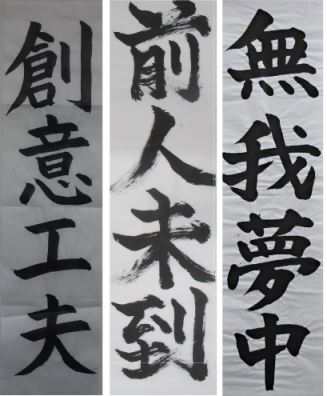 無我夢中
前人未到
創意工夫